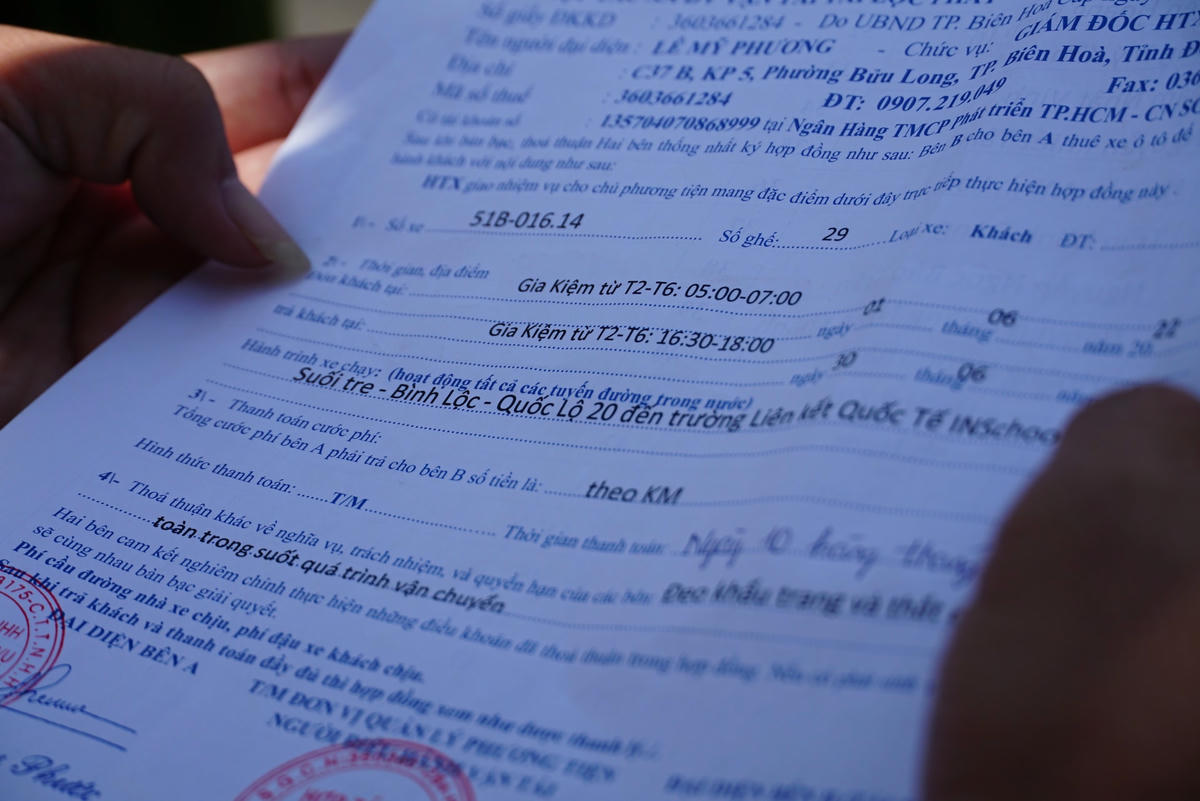 Số giấy ĐKKD : 3603661284 - Do UBND TP. Biên Hoà Cấp ngày
Tên người đại diện : LÊ MỸ PHƯƠNG - Chức vụ: GIÁM ĐỐC HTX
Địa chỉ : C37 B, KP 5, Phường Bửu Long, TP. Biên Hoà, Tỉnh Đ
Mã số thuế : 3603661284 ĐT: 0907.219.049 Fax: 036
Có tài khoản số : 135704070868999 tại Ngân Hàng TMCP Phát triển TP.HCM - CN SG
Sau khi bàn bạc, thoả thuận Hai bên thống nhất ký hợp đồng như sau: Bên B cho bên A thuê xe ô tô để
hành khách với nội dung như sau:
HTX giao nhiệm vụ cho chủ phương tiện mang đặc điểm dưới đây trực tiếp thực hiện hợp đồng này .
1\- Số xe 51B-016.14 Số ghế: 29 Loại xe: Khách ĐT:
2\- Thời gian, địa điểm
Đón khách tại: Gia Kiệm từ T2-T6: 05:00-07:00 ngày 01 tháng 06 năm 2022
trả khách tại: Gia Kiệm từ T2-T6: 16:30-18:00 ngày 30 tháng 06
Hành trình xe chạy: (hoạt động tất cả các tuyến đường trong nước)
Suối tre - Bình Lộc - Quốc Lộ 20 đến trường Liên kết Quốc Tế INSchoo
3\- Thanh toán cước phí:
Tổng cước phí bên A phải trả cho bên B số tiền là: theo KM
Hình thức thanh toán: ......T/M Thời gian thanh toán: Ngày 10 hàng tháng
4\- Thoả thuận khác về nghĩa vụ, trách nhiệm, và quyền hạn của các bên: Đeo khẩu trang và thắt
toàn trong suốt quá trình vận chuyển
Hai bên cam kết nghiêm chỉnh thực hiện những điều khoản đã thoả thuận trong hợp đồng. Nếu có phát sinh
sẽ cùng nhau bàn bạc giải quyết.
Phí cầu đường nhà xe chịu, phí đậu xe khách chịu.
Sau khi trả khách và thanh toán đầy đủ thì hợp đồng xem như được thanh lý./.
ĐẠI DIỆN BÊN A
T/M ĐƠN VỊ QUẢN LÝ PHƯƠNG TIỆN
Phước